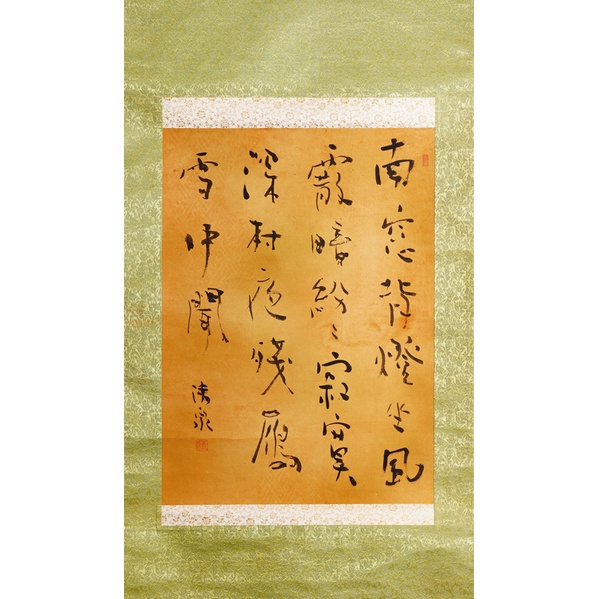 南窓背燈坐風
霰暗紛〻寂寞
深村夜殘鴈
雪中聞